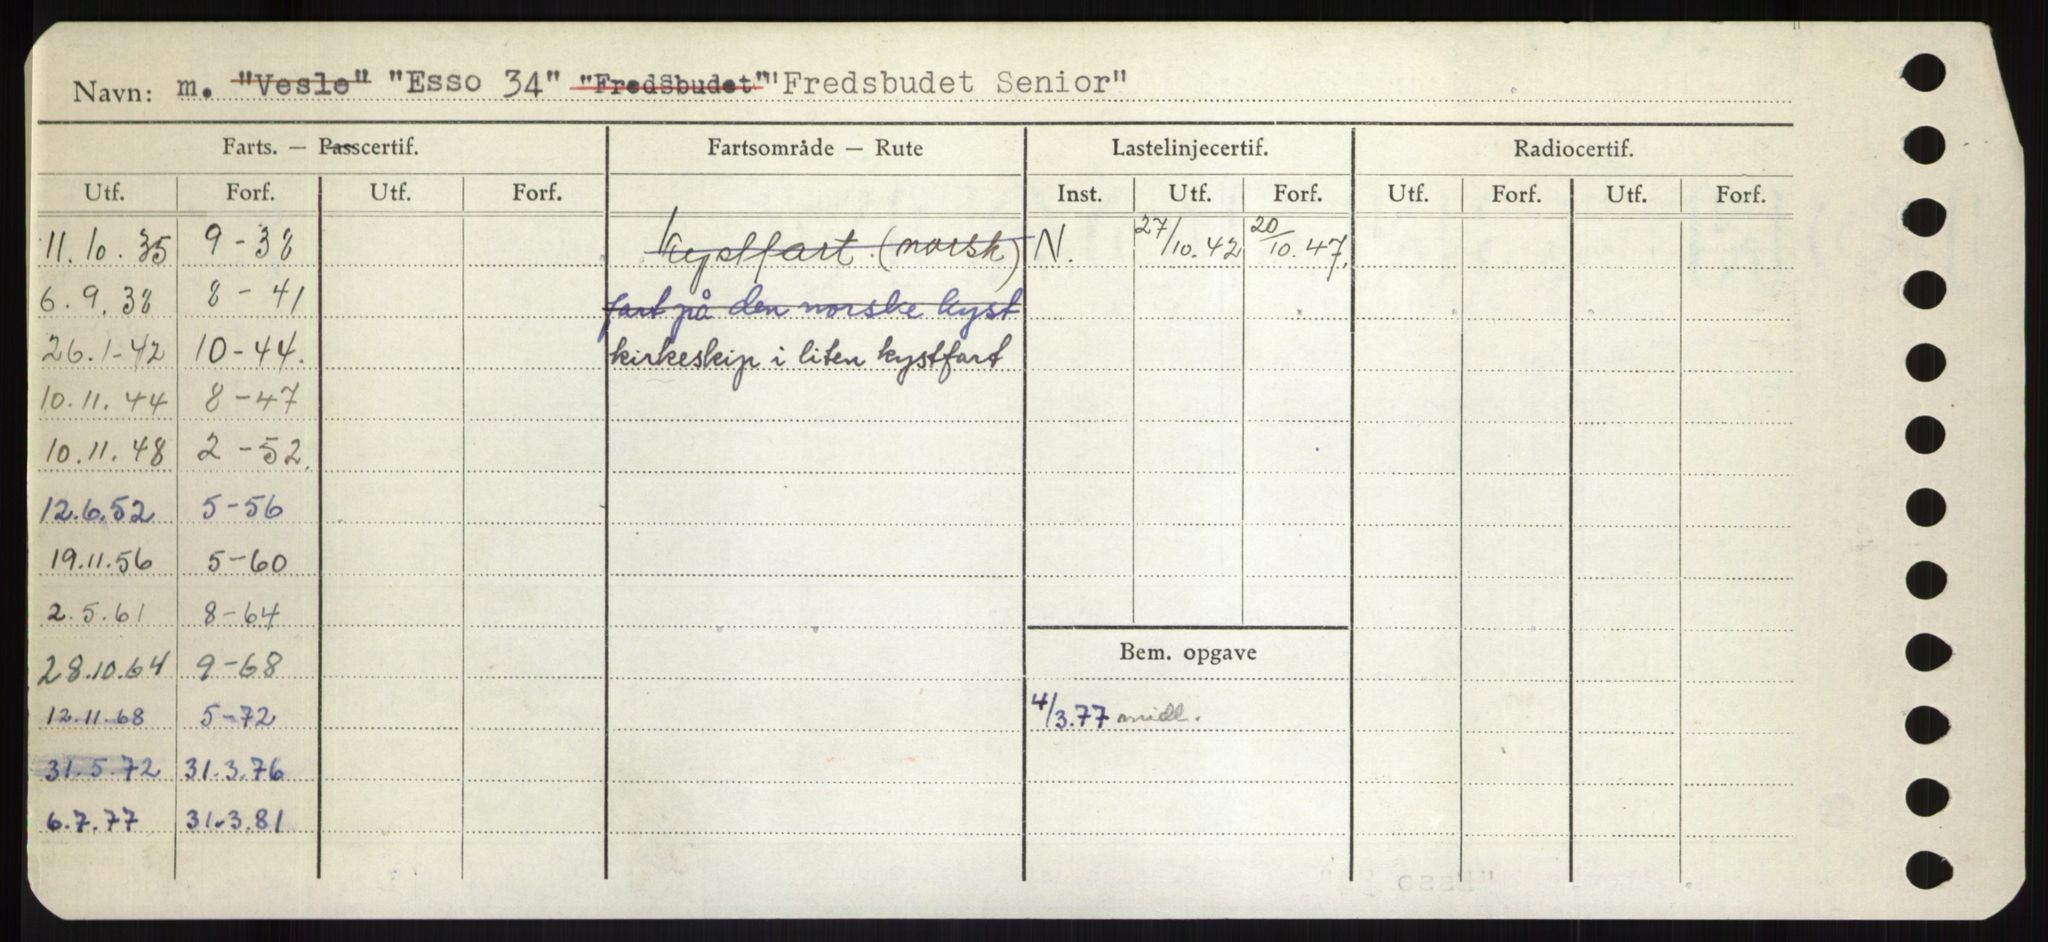 Navn: m. "Vesle" "Esso 34" "FredSbudet" "Fredsbudet Senior"
Farts. — Passcertif. Fartsområde — Rute Lastelinjecertif. Radiocertif.
Utf. Forf. Utf. Forf. Inst. Utf. Forf. Utf. Forf. Utf. Forf.
11.10.35 9-38 kystfart (norsk) N. 27/10.42 20/10.47
6.9.38 8-41 fart på den norske kyst
26.1-42 10-44. kirkeskip i liten kystfart
10.11.44 8-47
10.11.48 2-52.
12.6.52 5-56
19.11.56 5-60
2.5.61 8-64
Bem. opgave
28.10.64 9-68
12.11.68 5-72 4/3.77 midl.
31.5.72 31.3.76
6.7.77 31.3.81